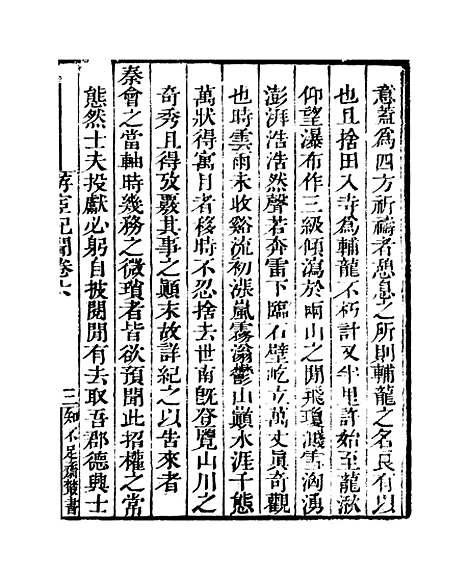 意蓋爲四方祈禱者憩息之所則輔龍之名良有以
也且捨田入寺爲輔龍不朽計又半里許始至龍湫
仰望瀑布作三級傾瀉於兩山之間飛瓊濺雪洶湧
澎湃浩浩然聲若奔雷下臨石壁屹立萬丈眞奇觀
也時雲雨未收谿流初漲嵐霧滃鬱山巔水涯千態
萬狀得寓目者移時不忍捨去世南旣登覽山川之
奇秀且得攷覈其事之顚末故詳紀之以告來者
秦會之當軸時幾務之微瑣者皆欲預聞此招權之常
態然士夫投獻必躬自披閱閒有去取吾郡德興士
游宦紀聞卷六
三
知不足齋叢書